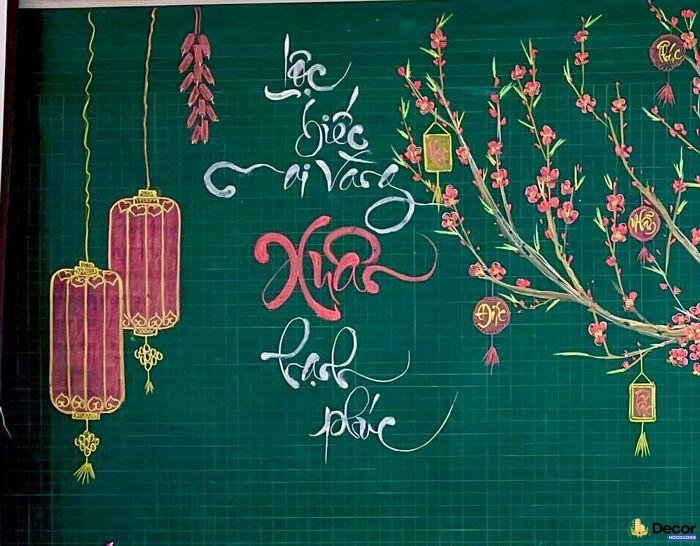 Lộc
biếc
mai vàng
Xuân
hạnh
phúc
Phúc
Đức
Decor
HOCDUONG